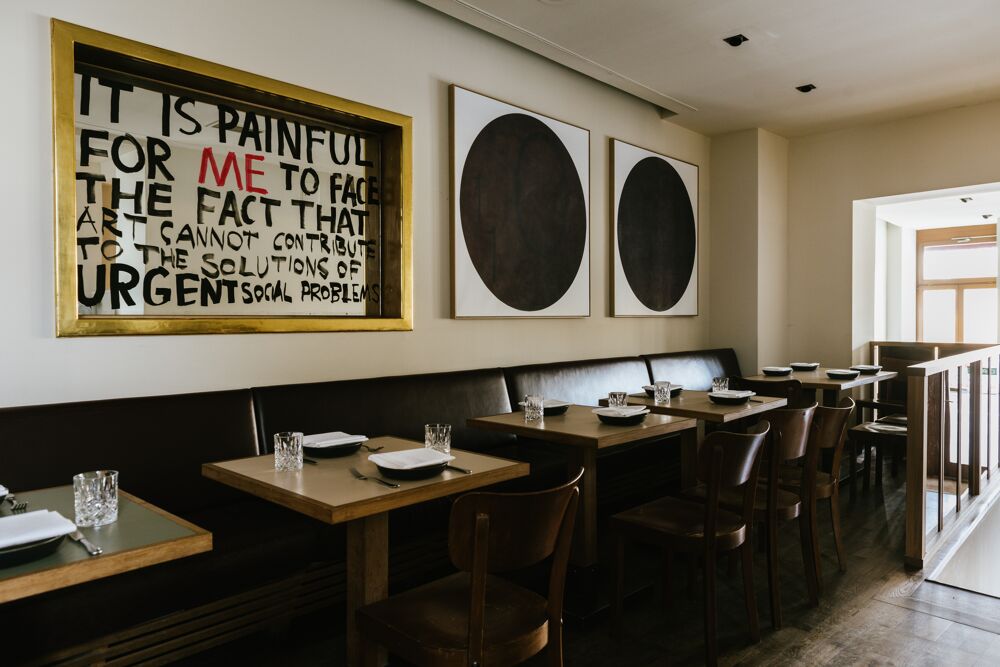 IT IS PAINFUL
FOR ME TO FACE
THE FACT THAT
ART CANNOT CONTRIBUTE
TO THE SOLUTIONS OF
URGENT SOCIAL PROBLEMS